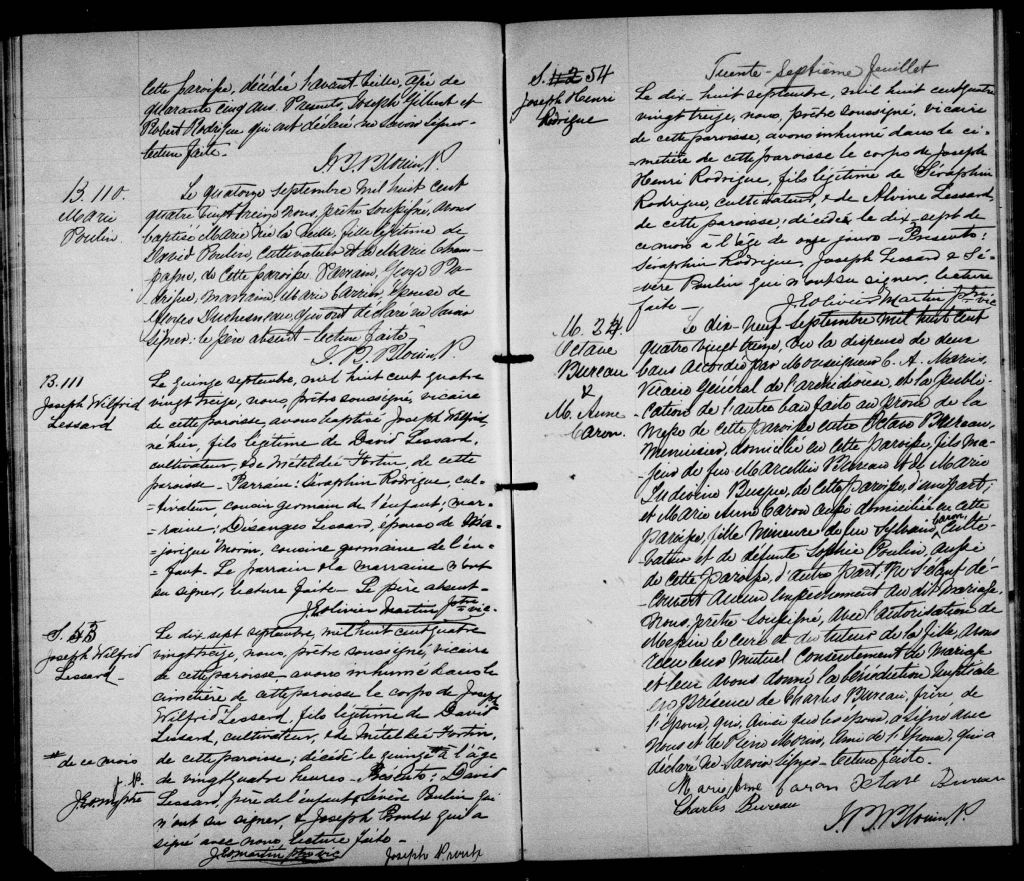 cette paroisse, décédée l'avant veille, âgé de
quarante cinq ans. Présents, Joseph Gilbert et
Robert Rodrigue qui ont déclaré ne savoir signer
lecture faite.
B. 110.
Marie
Poulin
Le quatorze septembre mil huit cent
quatre vingt treize nous, prêtre soussigné, avons
baptisé Marie née la veille, fille légitime de
David Poulin, cultivateur et de Marie Cham-
pagne, de cette paroisse. Parrain, George Ro-
drigue, marraine Marie Carrier, épouse de
Georges Duchesneau, qui ont déclaré ne savoir
signer: le père absent - lecture faite.
B. 111
Joseph Wilfrid
Lessard
Le quinze septembre, mil huit cent quatre
vingt treize, nous prêtre soussigné, vicaire
de cette paroisse, avons baptisé Joseph Wilfrid,
né hier, fils légitime de David Lessard,
cultivateur, & de Métildée Fortin, de cette
paroisse - Parrain: Séraphin Rodrigue, cul-
=tivateur, cousin germain de l'enfant; mar-
=raine; Desanges Lessard, épouse de Ma-
=jorique Morin, cousine germaine de l'en-
=fant. Le parrain & la marraine n'ont
su signer, lecture faite - Le père absent -
J Eolivier Martin ptre vic.
S. 43
Joseph Wilfrid
Lessard
Le dix sept septembre, mil huit cent quatre
vingt treize, nous, prêtre soussigné vicaire
de cette paroisse, avons inhumé dans le
cimetière de cette paroisse le corps de Joseph
Wilfrid Lessard, fils légitime de David
Lessard, cultivateur, & de Métildée Fortin,
# de ce mois
de cette paroisse; décédé le quinze # à l'âge
de vingt quatre heures - Présents; David
Lessard, père de l'enfant & Sévère Poulin qui
n'ont su signer, & Joseph Poulx qui a
signé avec nous, lecture faite -
J E O martin ptre vic
Trente-Septième feuillet
S. 42 54
Joseph Henri
Rodrigue
Le dix-huit septembre, mil huit cent quatre
vingt treize, nous, prêtre soussigné, vicaire
de cette paroisse, avons inhumé dans le ci-
=metière de cette paroisse le corps de Joseph
Henri Rodrigue, fils légitime de Séraphin
Rodrigue, cultivateur, & de Alvine Lessard,
de cette paroisse, décédé le dix-sept de
ce mois à l'âge de onze jours - Présents;
Séraphin Rodrigue, Joseph Lessard & Sé-
vère Poulin qui n'ont su signer, lecture
faite -
J Eolivier Martin ptre vic
M. 24.
Octave
Bureau
&
M. Anne
Caron.
Le dix-neuf septembre mil huit cent
quatre vingt treize, vu la dispense de deux
bans accordée par Monseigneur C. A. Marois,
Vicaire Général de l'archidiocèse, et la publi-
cation de l'autre ban faite au prône de la
Messe de cette paroisse entre Octave Bureau,
Menuisier, domicilié en cette paroisse, fils ma-
jeur de feu Marcellin Bureau et de Marie
Busque, de cette paroisse, d'une part;
et Marie Anne Caron aussi domiciliée en cette
paroisse, fille mineure de feu Sylvain Caron, culti-
vateur et de défunte Sophie Poulin, aussi
de cette paroisse, d'autre part; ne s'étant dé-
couvert aucun empêchement au dit mariage,
Nous, prêtre soussigné, avec l'autorisation de
Messire le curé et du tuteur de la fille, avons
reçu leur mutuel consentement de mariage
et leur avons donné la bénédiction nuptiale
en présence de Charles Bureau, frère de
l'époux, qui, ainsi que les époux, a signé avec
Nous et de Pierre Morin, ami de l'époux, qui a
déclaré ne savoir signer - lecture faite.
Marie Anne Caron Octave Bureau
Charles Bureau